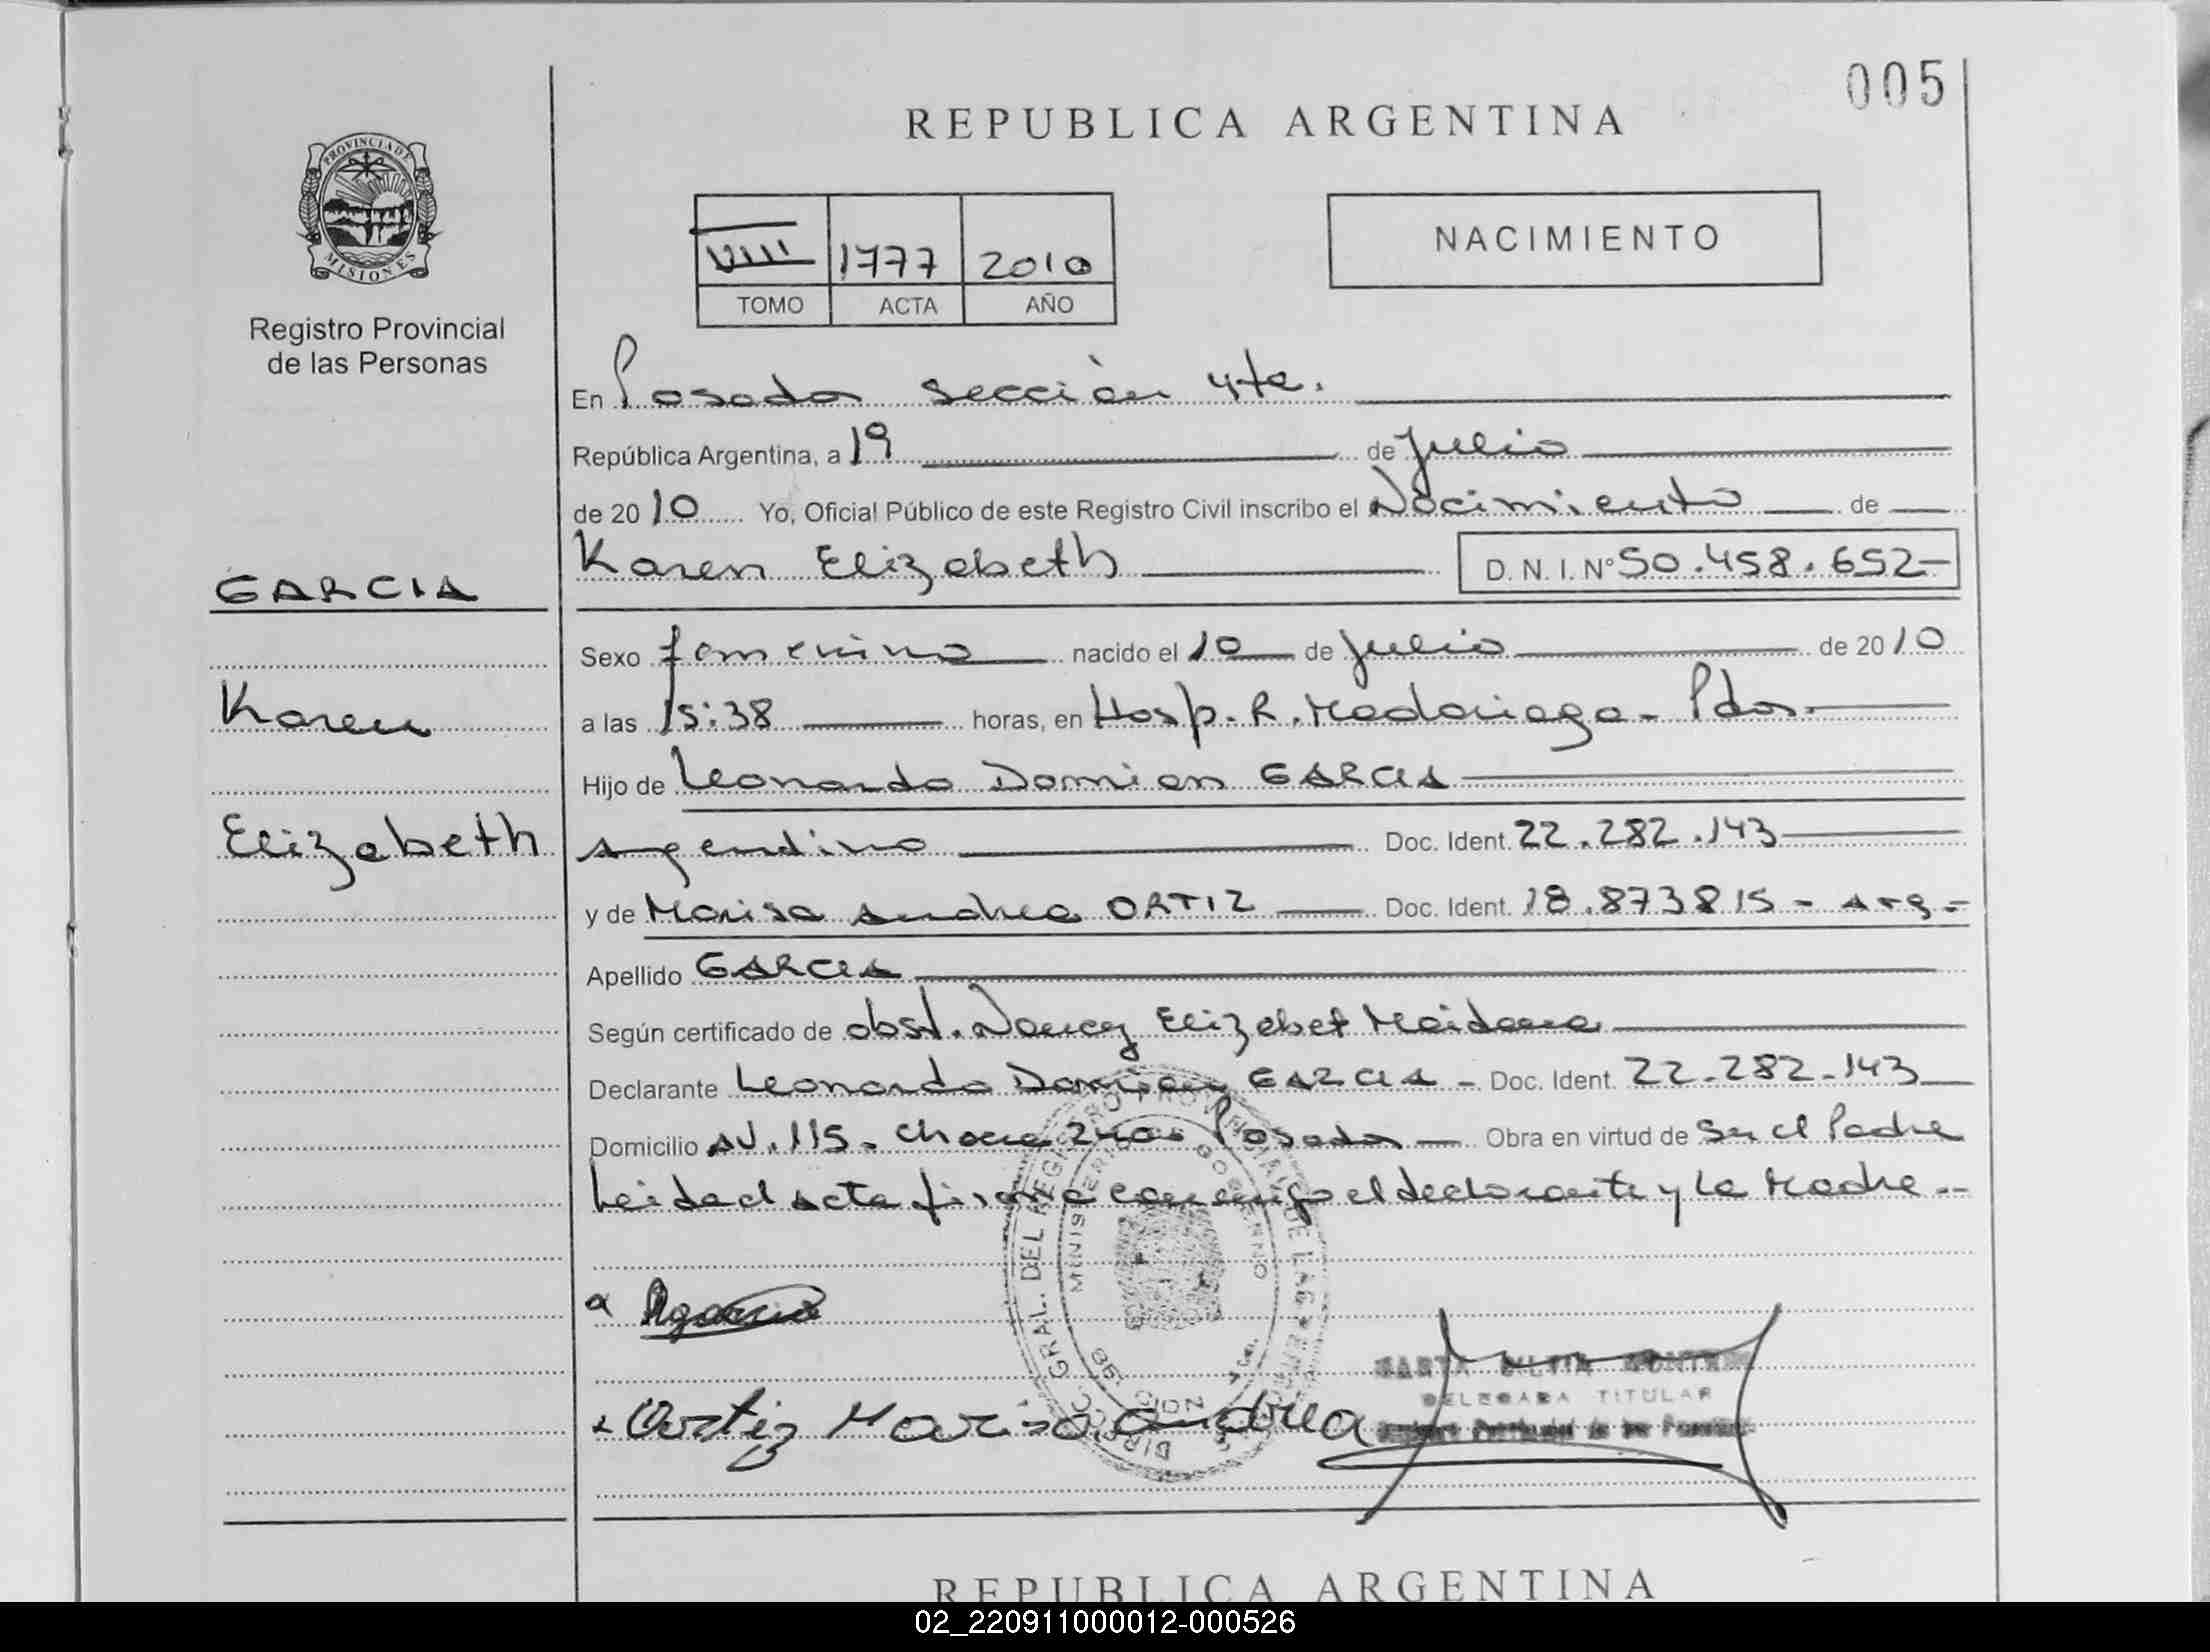 005
REPUBLICA ARGENTINA
PROVINCIA DE
MISIONES
Registro Provincial
de las Personas
VIII 1777 2010
TOMO ACTA AÑO
NACIMIENTO
En Posadas sección 4ta.
República Argentina, a 19 de Julio
de 2010 Yo, Oficial Público de este Registro Civil inscribo el Nacimiento de
GARCIA
Karen Elizabeth D.N.I. Nº 50.458.652-
Sexo femenino nacido el 10 de Julio de 2010
Karen
a las 15:38 horas, en Hosp. R. Madariaga - Pdas.
Hijo de Leonardo Damian GARCIA
Elizabeth
Argentino Doc. Ident. 22.282.143
y de Marisa Andrea ORTIZ Doc. Ident. 18.873815 - Arg -
Apellido GARCIA
Según certificado de obst. Nancy Elizabet Maidana
Declarante Leonardo Damian GARCIA - Doc. Ident. 22-282-143
Domicilio AV. 115 - Chacra Posadas Obra en virtud de Ser el Padre
Leida el acta firma conmigo el declarante y La Madre --
Ortiz Marisa andrea
DELEGADA TITULAR
REPUBLICA ARGENTINA
02_220911000012-000526